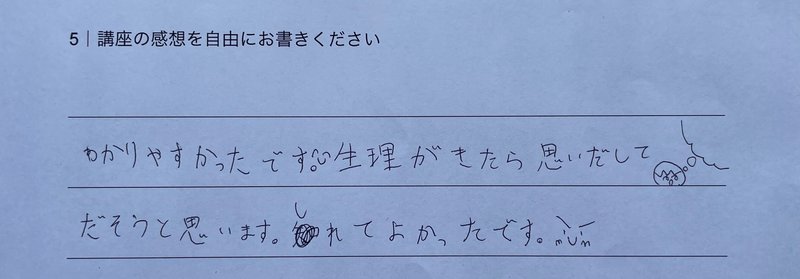 5｜講座の感想を自由にお書きください
わかりやすかったです。生理がきたら思いだして
だそうと思います。しれてよかったです。